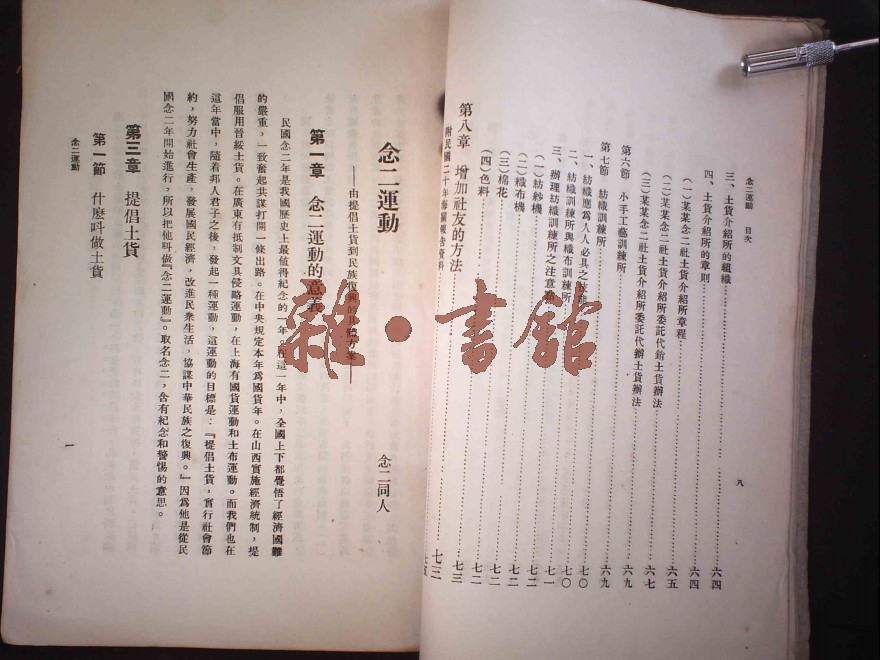 念二運動　目次
三、土貨介紹所的組織……六四
四、土貨介紹所的章則……六四
（一）某某念二社土貨介紹所章程……六四
（二）某某念二社土貨介紹所委託代銷土貨辦法……六五
（三）某某念二社土貨介紹所委託代辦土貨辦法……六七
第六節　小手工藝訓練所……六九
第七節　紡織訓練所……六九
一、紡織應爲人人必具之技能……七〇
二、紡織訓練所與織布訓練所……七〇
三、辦理紡織訓練所之注意點……七一
（一）紡紗機……七二
（二）織布機……七二
（三）棉花……七二
（四）色料……七二
第八章　增加社友的方法……七三
附民國二十年海關報告資料……七三
八
念二運動
——由提倡土貨到民族復興的具體方案——
念二同人
第一章　念二運動的意義
民國念二年是我國歷史上最值得紀念的一年。在這一年中，全國上下都覺悟了經濟國難
的嚴重，一致奮起共謀打開一條出路。在中央規定本年爲國貨年。在山西實施經濟統制，提
倡服用晉綏土貨。在廣東有抵制文具侵略運動，在上海有國貨運動和土布運動。而我們也在
這年當中，隨着邦人君子之後，發起一種運動，這運動的目標是：『提倡土貨，實行社會節
約，努力社會生產，發展國民經濟，改進民衆生活，協謀中華民族之復興。』因爲他是從民
國念二年開始進行，所以把他叫做『念二運動』。取名念二，含有紀念和警惕的意思。
第三章　提倡土貨
第一節　什麼叫做土貨
念二運動
一
雜·書館